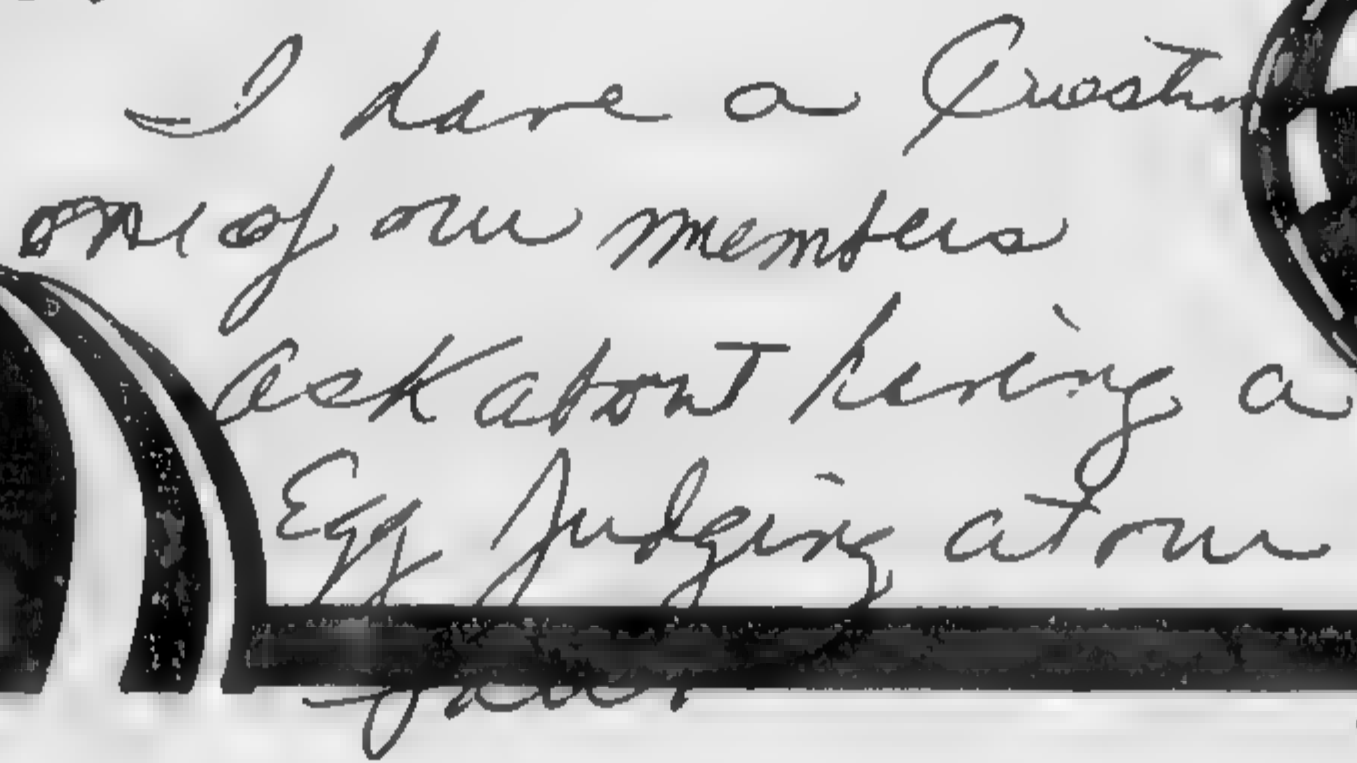 I have a Question
one of our members
ask about having a
Egg Judging at our